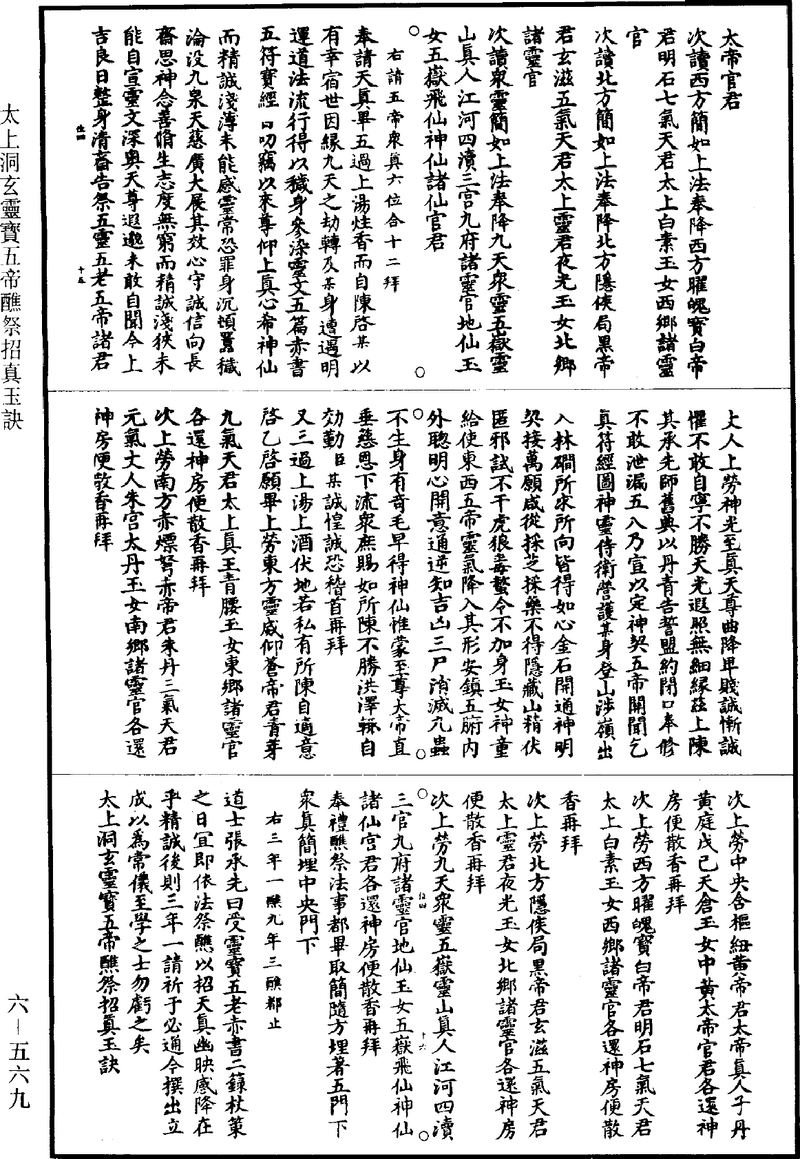 太帝官君
次讀西方簡如上法奉降西方曜魄寶白帝
君明石七氣天君太上白素玉女西鄉諸靈
官
次讀北方簡如上法奉降北方隱侯局黑帝
君玄滋五氣天君太上靈君夜光玉女北鄉
諸靈官
次讀衆靈簡如上法奉降九天衆靈五嶽靈
山眞人江河四瀆三官九府諸靈官地仙玉
女五嶽飛仙神仙諸仙官君
右請五帝衆眞六位合十二拜
奉請天眞畢五過上湯炷香而自陳啓某以
有幸宿世因緣九天之劫轉及某身遭遇明
運道法流行得以穢身參染靈文五篇赤書
五符寶經口叨竊以來尊仰上眞心希神仙
而精誠淺薄未能感靈常恐罪身沉頓囂穢
淪没九泉天慈廣大展其效心守誠信向長
齋思神念善脩生志度無窮而精誠淺狹未
能自宣靈文深奥天尊遐邈未敢自聞今上
吉良日整身清齋告祭五靈五老五帝諸君
仕四
十五
丈人上勞神光至眞天尊曲降卑賤誠慚誠
懼不敢自寧不勝天光遐照無細緣兹上陳
其承先師舊典以丹青告誓盟約閉口奉修
不敢泄漏五八乃宣以定神契五帝開聞乞
眞符經圖神靈侍衛營護某身登山涉嶺出
入林磵所求所向皆得如心金石開通神明
契接萬願咸從採芝採藥不得隱藏山精伏
匿邪試不干虎狼毒螫令不加身玉女神童
給使東西五帝靈氣降入其形安鎮五腑内
外聰明心開意通逆知吉凶三尸消滅九蟲
不生身有奇毛早得神仙惟蒙至尊大帝直
垂慈恩下流衆庶賜如所陳不勝洪澤輒自
効勤臣某誠惶誠恐稽首再拜
又三過上湯上酒伏地若私有所陳自適意
啓乙啓願畢上勞東方靈威仰蒼帝君青芽
九氣天君太上眞王青腰玉女東鄉諸靈官
各還神房便散香再拜
次上勞南方赤熛弩赤帝君朱丹三氣天君
元氣丈人朱宫太丹玉女南鄉諸靈官各還
神房便散香再拜
次上勞中央含樞紐黄帝君太帝眞人子丹
黄庭戊己天倉玉女中黄太帝官君各還神
房便散香再拜
次上勞西方曜魄寶白帝君明石七氣天君
太上白素玉女西鄉諸靈官各還神房便散
香再拜
次上勞北方隱侯局黑帝君玄滋五氣天君
太上靈君夜光玉女北鄉諸靈官各還神房
便散香再拜
次上勞九天衆靈五嶽靈山眞人江河四瀆
仕四
十六
三官九府諸靈官地仙玉女五嶽飛仙神仙
諸仙宫君各還神房便散香再拜
奉禮醮祭法事都畢取簡隨方埋著五門下
衆眞簡埋中央門下
右三年一醮九年三醮都止
道士張承先曰受靈寶五老赤書二籙杖策
之日宜即依法祭醮以招天眞幽映感降在
乎精誠後則三年一請祈于必通今撰出立
成以爲常儀至學之士勿虧之矣
太上洞玄靈寶五帝醮祭招眞玉訣
太上洞玄靈寶五帝醮祭招真玉訣
六－五六九